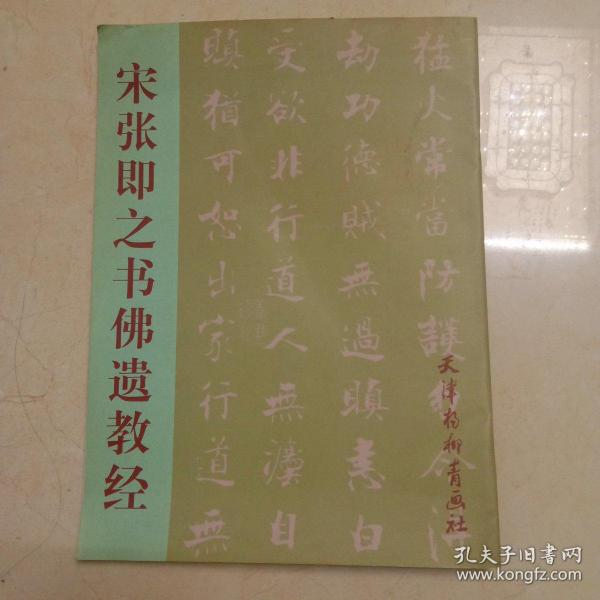 宋张即之书佛遗教经
猛火常當防護勿令
劫功德賊無過瞋恚白
受欲非行道人無灋自
瞋猶可恕出家行道無
天津杨柳青画社
孔夫子旧书网
www.kongfz.com